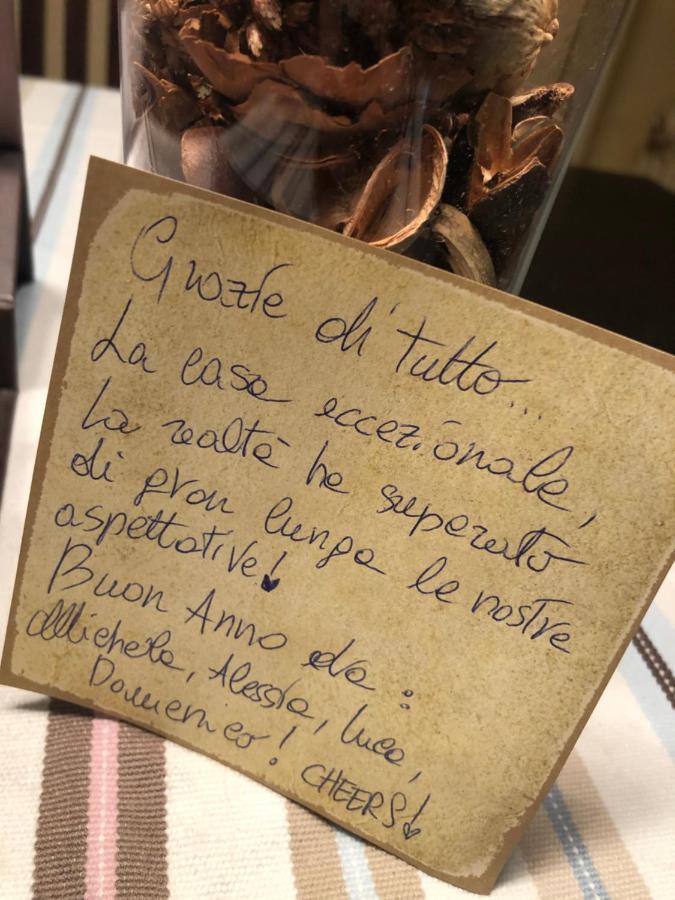 Grazie di tutto...
La casa eccezionale,
La realtà ha superato
di gran lunga le nostre
aspettative!
Buon Anno da:
Michela, Alessia, Luca,
Domenico! CHEERS!